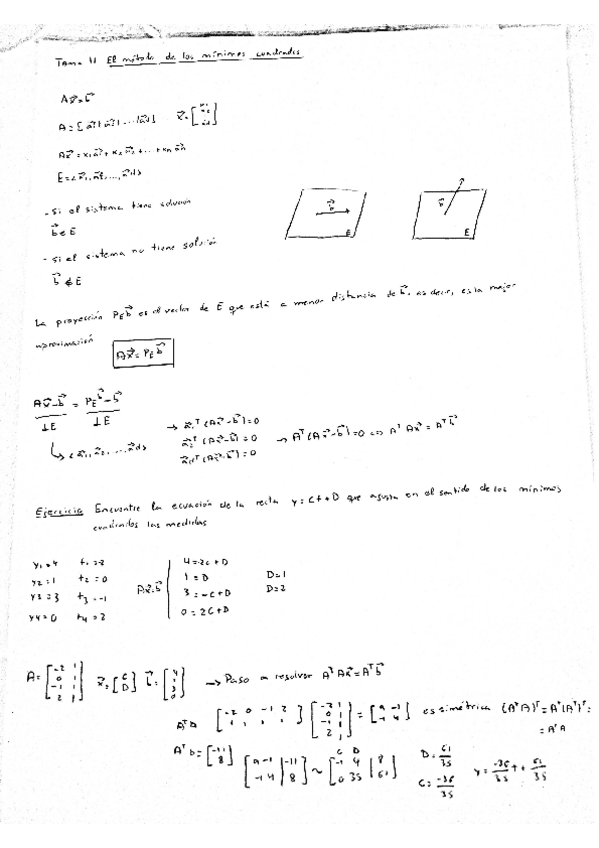 Tema 11 El método de los mínimos cuadrados
Ax⃗=b⃗
A=[a⃗1 | a⃗2 | ... | a⃗d] x⃗=[x1 x2 ... xd]
Ax⃗ = x1a⃗1 + x2a⃗2 + ... + xn a⃗n
E=<a⃗1, a⃗2, ..., a⃗d>
- Si el sistema tiene solución
b⃗ ∈ E
b⃗ E
b⃗ E
- Si el sistema no tiene solución
b⃗ ∉ E
La proyección PEb⃗ es el vector de E que está a menor distancia de b⃗, es decir, es la mejor
aproximación Ax⃗ = PEb⃗
Ax⃗-b⃗ = PEb⃗-b⃗
⊥E ⊥E
↳ <a⃗1, a⃗2, ..., a⃗d>
→ a⃗1ᵀ(Ax⃗-b⃗)=0
a⃗2ᵀ(Ax⃗-b⃗)=0
a⃗dᵀ(Ax⃗-b⃗)=0
→ Aᵀ(Ax⃗-b⃗)=0 => AᵀAx⃗ = Aᵀb⃗
Ejercicio Encuentre la ecuación de la recta y=Ct+D que ajusta en el sentido de los mínimos
cuadrados las medidas
y1=4 t1=-2 4=-2C+D
y2=1 t2=0 Ax⃗=b⃗ 1=D D=1
y3=3 t3=-1 3=-C+D D=2
y4=0 t4=2 0=2C+D
A=[-2 1; 0 1; -1 1; 2 1] x⃗=[C; D] b⃗=[4; 1; 3; 0] → Paso a resolver AᵀAx⃗=Aᵀb⃗
AᵀA [-2 0 -1 2; 1 1 1 1] [-2 1; 0 1; -1 1; 2 1] = [9 -1; -1 4] es simétrica (AᵀA)ᵀ=Aᵀ(Aᵀ)ᵀ=
=AᵀA
Aᵀb=[-11; 8] [9 -1 | -11; -1 4 | 8] ~ [-1 4 | 8; 0 35 | 61] C D
D=61/35
C=-36/35
y=-36/35 t + 61/35